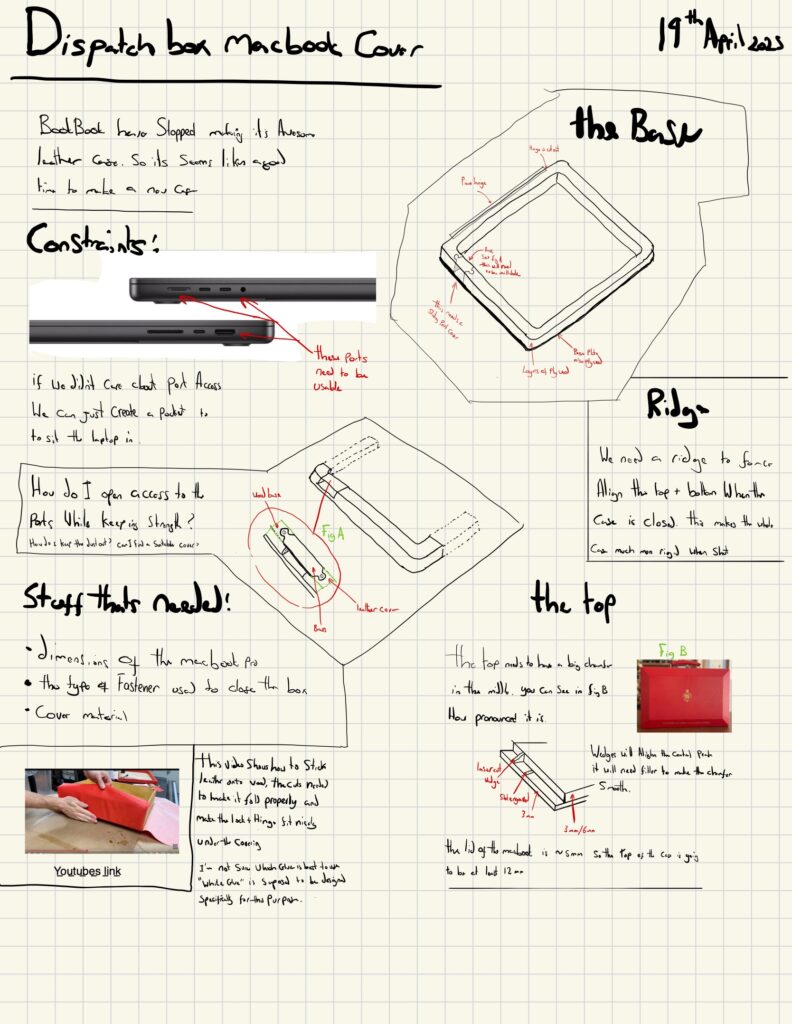 Dispatch box Macbook Cover
19th April 2025
BookBook have Stopped making its Awesome
leather Case. So its Seems like a good
time to make a new Case
the Base
Hinge cutout
Piano hinge
this needs a
Sliding Port Cover
Base Plate
Layers of Plywood
Constraints!
these Ports
need to be
usable
if we didn't Care about Port Access
We can just Create a Pocket to
to sit the laptop in.
Ridge
We need a ridge to
Align the top + bottom When the
Case is closed. this makes the whole
Case much more rigid when Shut
How do I open access to the
Ports While keeping Strength?
How do I keep the dust out? Can I find a Suitable Cover?
Wood base
Fig A
leather cover
Stuff thats needed!
• dimensions of the macbook pro
• the type of Fastener used to close the box
• Cover material
the top
the top needs to have a big chamfer
in the middle. you Can See in fig B
How pronounced it is.
Fig B
Wedges will Align the Central Peak
it will need filler to make the chamfer
Smooth.
laser cut
wedge
3mm
3mm/6mm
the lid of the macbook is ~5mm So the top of the Case is going
to be at least 12mm
this video Shows how to Stick
leather onto wood, the cuts needed
to make it fold properly and
make the lock + Hinge fit nicely
under the Covering
I'm not Sure Which Glue is best to use
"White Glue" is Suposed to be designed
Specifically for this Purpose.
Youtubes link